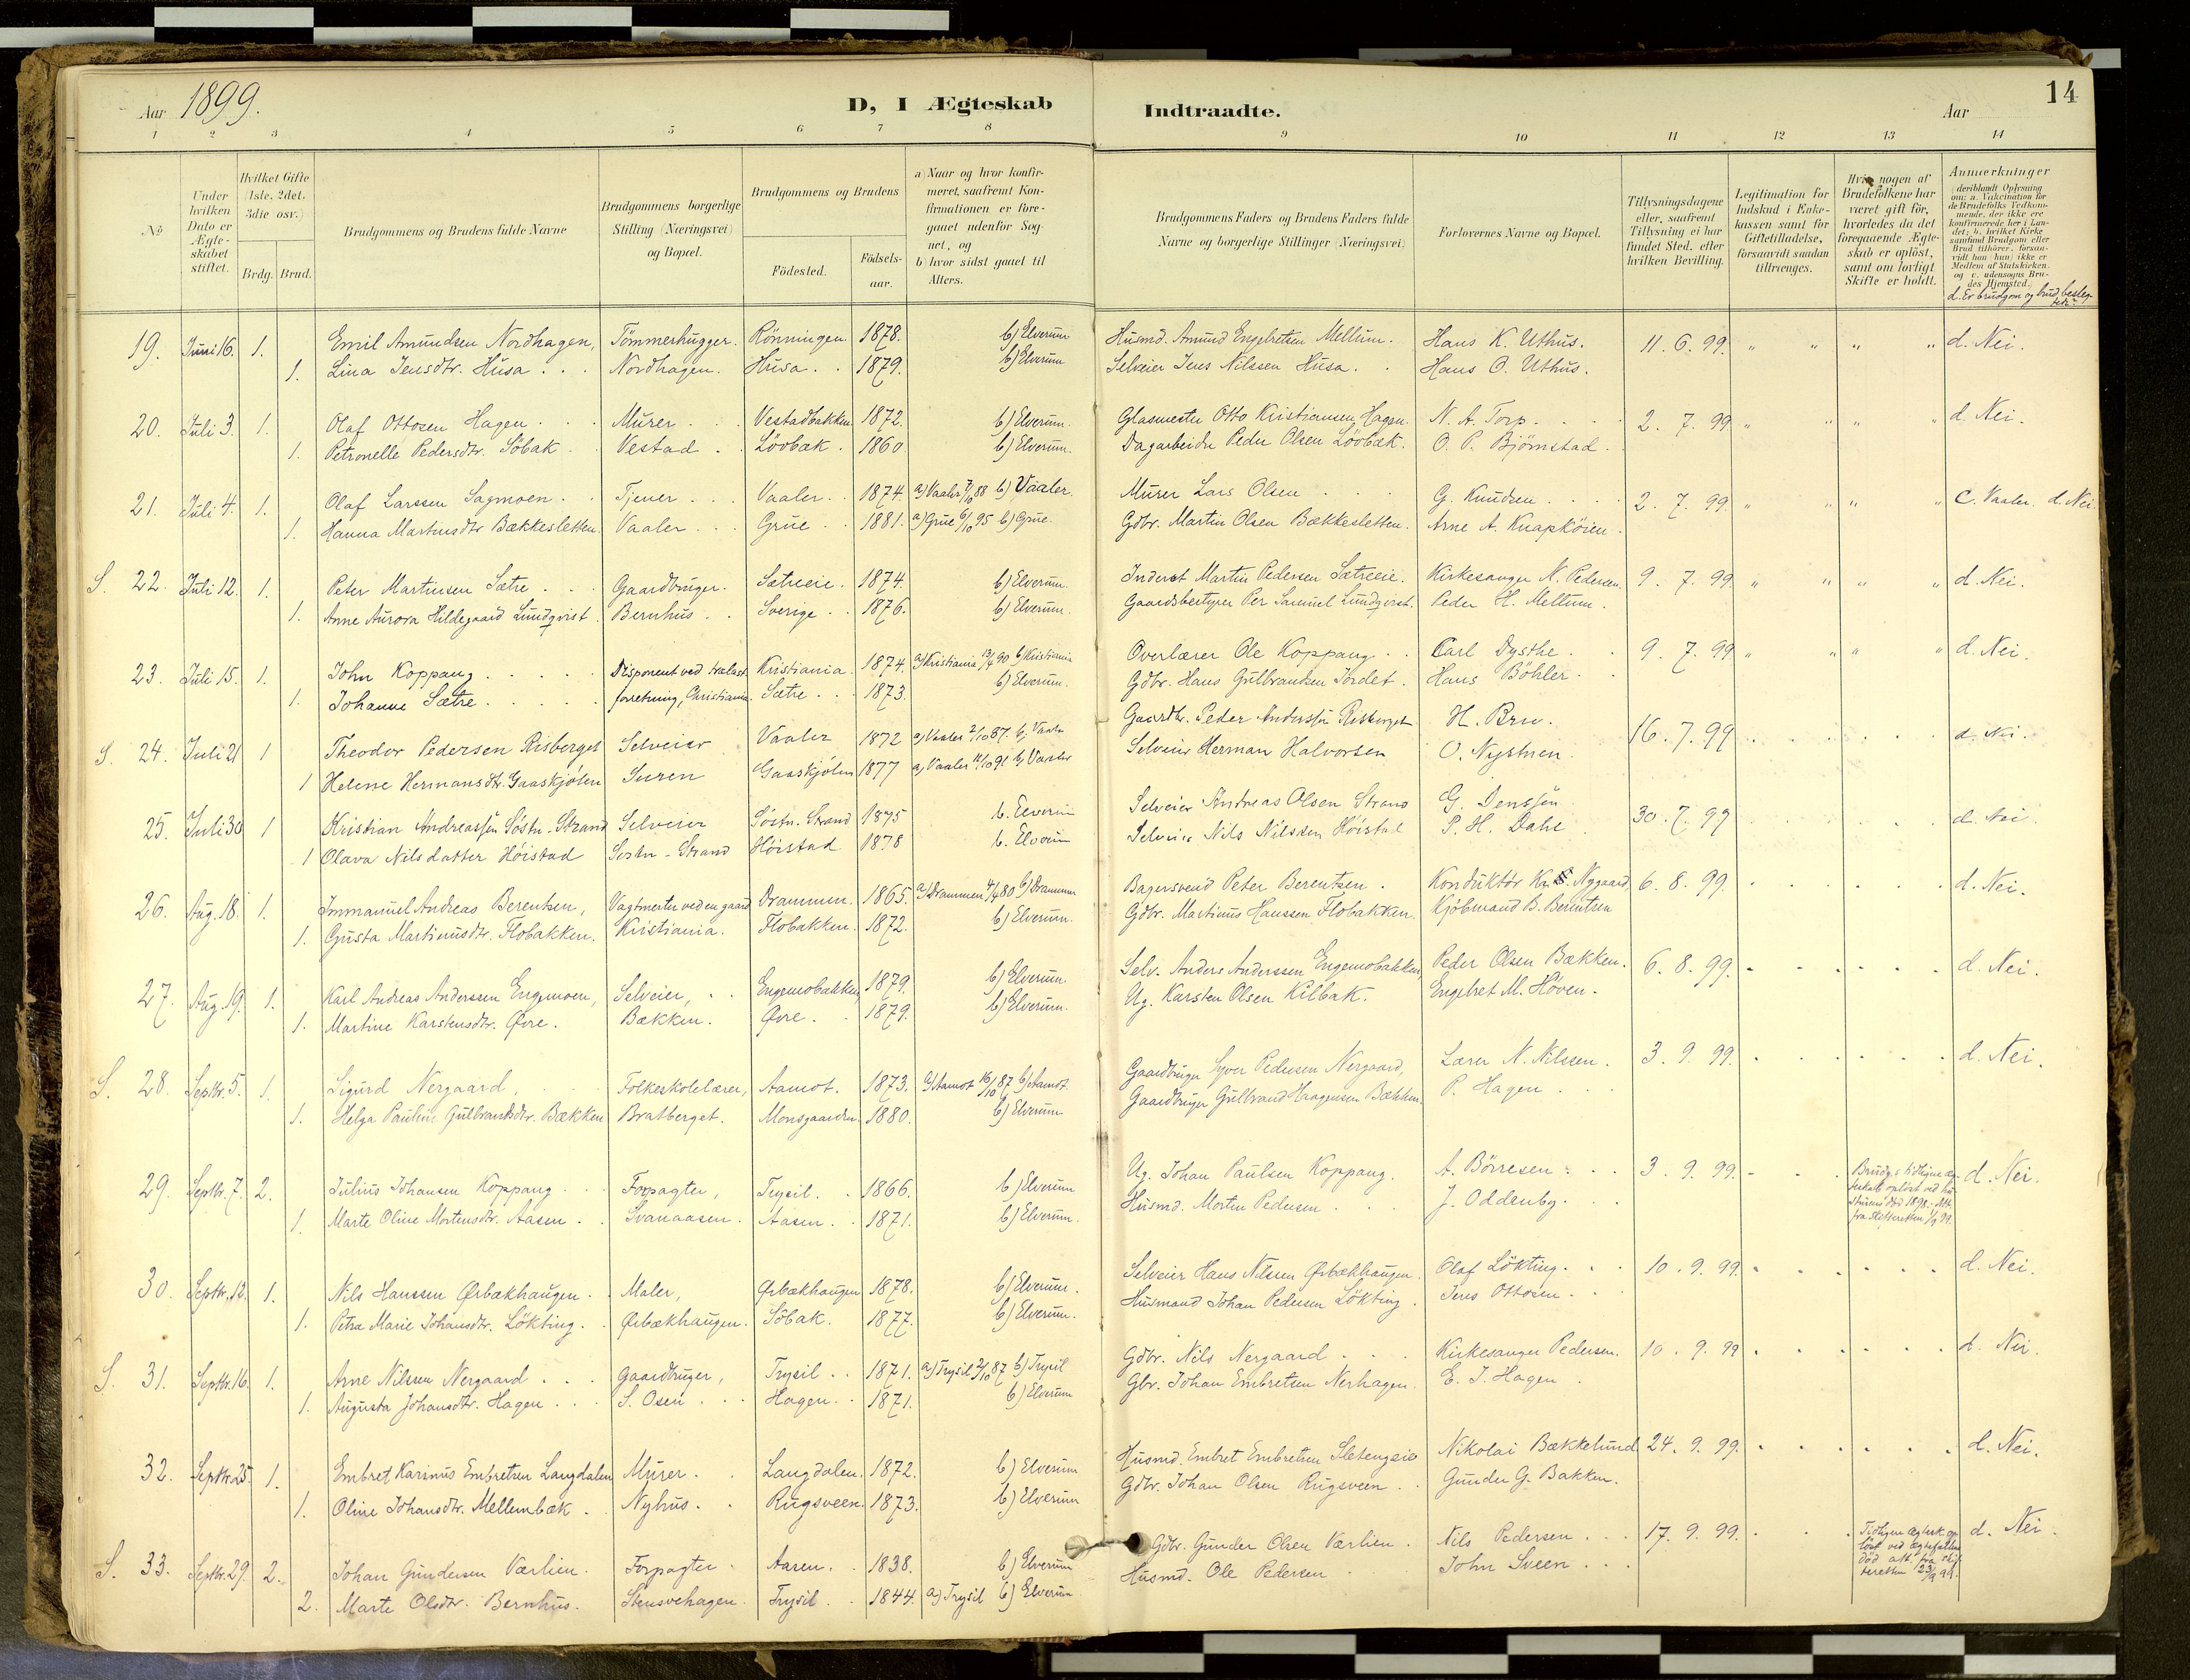 Aar 1899. D, I Ægteskab Indtraadte. Aar 14
1 2 3 4 5 6 7 8 9 10 11 12 13 14
No.
Under hvilken Dato er Ægteskabet stiftet.
Hvilket Gifte (1ste, 2det, 3die osv.)
Brdg. Brud.
Brudgommens og Brudens fulde Navne
Brudgommens borgerlige Stilling (Næringsvei) og Bopæl.
Brudgommens og Brudens
Fødested. Fødselsaar.
a) Naar og hvor konfirmeret, saafremt Konfirmationen er foregaaet udenfor Sognet, og
b) hvor sidst gaaet til Alters.
Brudgommens Faders og Brudens Faders fulde Navne og borgerlige Stillinger (Næringsvei)
Forlovernes Navne og Bopæl.
Tillysningsdagene eller, saafremt Tillysning ei har fundet Sted, efter hvilken Bevilling.
Legitimation for Indskud i Enkekassen samt for Giftetilladelse, forsaavidt saadan tiltrænges.
Hvis nogen af Brudefolkene har været gift før, hvorledes da det foregaaende Ægteskab er opløst, samt om lovligt Skifte er holdt.
Anmærkninger (deriblandt Oplysning om: a. Vakcination for de Brudefolks Vedkommende, der ikke ere konfirmerede her i Landet; b. hvilket Kirkesamfund Brudgom eller Brud tilhører, forsaavidt han (hun) ikke er Medlem af Statskirken, og c. udensogns Brudes Hjemsted.)
d. Er brudgom og brud beslægtede?
19. Juni 16. 1. Emil Amundsen Nordhagen, Tømmerhugger. Rönningen 1878. b) Elverum Husmd. Amund Engebretsen Mellum. Hans K. Uthus. 11. 6. 99. " " " " d. Nei.
1. Lina Jensdtr. Husa . . Nordhagen. Husa . . 1879. b) Elverum Selveier Jens Nilssen Husa. . Hans O. Uthus.
20. Juli 3. 1. Olaf Ottosen Hagen . . . Murer . . . Vestadbakken 1872. b) Elverum. Glasmester Otto Kristiansen Hagen. N. A. Torp. . . . 2. 7. 99. " " " " d. Nei.
1. Petronelle Pedersdtr. Söbak . . Vestad . . Lövbæk . 1860 b) Elverum. Dagarbeider Peder Olsen Lövbæk. O. P. Björnstad.
21. Juli 4. 1. Olaf Larssen Sagmoen . . Tjener . . . Vaaler . . 1874. a) Vaaler 7/10 88 b) Vaaler. Murer Lars Olsen . . . G. Knudsen . . . . 2. 7. 99. " " " " c. Vaaler. d. Nei.
1. Hanna Martinsdtr Bækkesletten. Vaaler . . . Grue . . 1881. a) Grue 6/10 95 b) Grue. Gdbr. Martin Olsen Bækkesletten. Arne A. Knapköien.
S. 22. Juli 12. 1. Peter Martinsen Sætre . . . Gaardbruger. Sætreeie. 1874. b) Elverum. Inderst Martin Pedersen Sætreeie. Kirkesanger N. Pedersen. 9. 7. 99 " " " " d. Nei.
1. Anne Aurora Hildegaard Lundqvist. Bernhus . . Sverige . . 1876. b) Elverum. Gaardsbestyrer Per Samuel Lundqvist. Peder H. Mellum.
23. Juli 15. 1. John Koppang . . . . . Disponent ved trælast- Kristiania. 1874. a) Kristiania 13/4 90 b) Kristiania Overlærer Ole Koppang . . Carl Dysthe . . 9. 7. 99 " " " " d. Nei.
1. Johanne Sætre . . . . . forretning, Christiania. Sætre . . . 1873. b) Elverum. Gdbr. Hans Gulbrandsen Jordet . Hans Böhler . .
S. 24. Juli 21 1 Theodor Pedersen Risberget Selveier Vaaler 1872 a) Vaaler 2/10 87. b) Vaaler Gaardbr. Peder Anderssøn Risberget H. Bru. 16. 7. 99 . . . . . . d. Nei.
1 Helene Hermansdtr. Gaaskjølen Suren Gaaskjølen 1877 a) Vaaler 11/10 91 b) Vaaler Selveier Herman Halvorsen O. Nystuen.
25. Juli 30 1 Kristian Andreassen Söstu-Strand Selveier Söstu-Strand 1875 b. Elverum Selveier Andreas Olsen Strand G. Jenssen 30. 7. 99 d. Nei.
1 Olava Nilsdatter Höistad Söstu-Strand Höistad 1878 b. Elverum Selveier Nils Nilssen Höistad P. H. Dahl
26. Aug. 18. 1. Immanuel Andreas Berentsen, Vagtmester ved en gaard Drammen. 1865. a) Drammen 4/4 80 b) Drammen Bagersvend Peter Berentsen . Konduktör Kr. Nygaard, 6. 8. 99. . . . . . . d. Nei.
1. Gusta Martinusdtr. Flobakken. Kristiania. Flobakken. 1872. b) Elverum. Gdbr. Martinus Hanssen Flobakken. Kjöbmand B. Berentsen
27. Aug. 19. 1. Karl Andreas Anderssen Engemoen, Selveier, . . Engemobakken, 1879. b) Elverum. Selv. Anders Anderssen Engemobakken, Peder Olsen Bækken. 6. 8. 99. . . . . . . d. Nei.
1. Martine Karstensdtr. Øvre. Bækken. Øvre . . 1879. b) Elverum. Ug. Karsten Olsen Kilbak. Engebret M. Hoven.
S. 28. Septbr. 5. 1. Sigurd Nergaard, . . . Folkeskolelærer, Aamot. 1873. a) Aamot 16/10 87 b) Aamot. Gaardbruger Syver Pedersen Nergaard, Lærer N. Nilssen. 3. 9. 99. . . . . . . d. Nei.
1. Helga Pauline Gulbrandsdtr. Bækken Bratberget. Monsgaarden. 1880. b) Elverum Gaardbruger Gulbrand Haagensen Bækken. P. Hagen . . .
29. Septbr. 7. 2. Julius Johansen Koppang . . . Forpagter, Trysil. . 1866. b) Elverum Ug. Johan Paulsen Koppang. A. Börresen . . . 3. 9. 99. . . . Brudg.s tidligere ægteskab oplöst ved hustruens död 1898. Att. fra skifteretten 1/9 99. d. Nei.
1. Marte Oline Mortensdtr. Aasen . . Svanaasen. Aasen. . 1871. b) Elverum. Husmd. Morten Pedersen . . . J. Oddenby . .
30. Septbr. 12. 1. Nils Hanssen Ørbækhaugen . . Maler, Ørbækhaugen 1878. b) Elverum. Selveier Hans Nilssen Ørbækhaugen. Olaf Lökting . . . 10. 9. 99. . . . . . . d. Nei.
1. Petra Marie Johansdtr. Lökting. . Ørbækhaugen. Söbak. 1877. b) Elverum. Husmand Johan Pedersen Lökting. Jens Ottosen . . .
S. 31. Septbr. 16. 1. Arne Nilssen Nergaard . . . Gaardbruger, Trysil . . 1871. a) Trysil 2/10 87 b) Trysil Gdbr. Nils Nergaard . . . Kirkesanger Pedersen. 10. 9. 99 . . . . . . d. Nei.
1. Augusta Johansdtr. Hagen . . . S. Osen . . . Hagen . . 1871. b) Elverum Gbr. Johan Embretsen Nerhagen. E. J. Hagen .
32. Septbr. 25 1. Embret Karinus Embretsen Langdalen Murer . . Langdalen. 1872. b) Elverum Husmd. Embret Embretsen Sletengseie Nikolai Bækkelund 24. 9. 99. . . . . . . d. Nei.
1. Oline Johansdtr. Mellembæk . . Nyhus. . Rugsveen. 1873. b) Elverum Gdbr. Johan Olsen Rugsveen . . Gunder G. Bakken.
S. 33. Septbr. 29. 2. Johan Gundersen Værlien . Forpagter . Aasen. . 1838. b) Elverum Gdbr. Gunder Olsen Værlien . Nils Pedersen . . . 17. 9. 99. . . . Tidligere ægtesk. oplöst ved ægtefællens död att. fra skifteretten 23/9 99. d. Nei.
2. Marte Olsdtr. Bernhus. Stensvehagen. Trysil . . 1844. a) Trysil b) Elverum. Husmd. Ole Pedersen . . John Sveen . . .